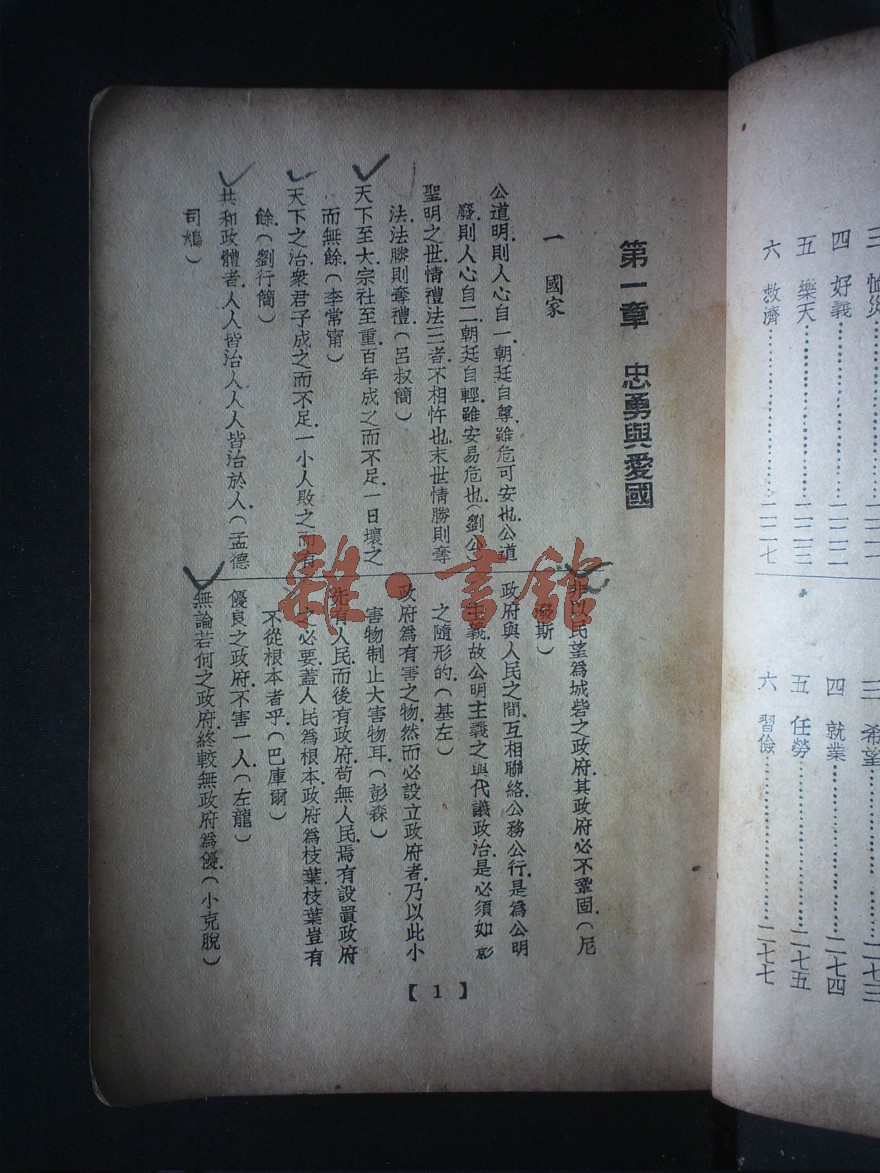 第一章　忠勇與愛國
一　國家
公道明則人心自一朝廷自尊雖危可安也公道
廢則人心自二朝廷自輕雖安易危也（劉公）
聖明之世情禮法三者不相忤也末世情勝則奪
法法勝則奪禮（呂叔簡）
天下至大宗社至重百年成之而不足一日壞之
而無餘（李常甯）
天下之治衆君子成之而不足一小人敗之而有
餘（劉行簡）
共和政體者人人皆治人人人皆治於人（孟德
司鳩）
非以民望爲城砦之政府其政府必不鞏固（尼
斯）
政府與人民之間互相聯絡公務公行是爲公明
主義故公明主義之與代議政治是必須如影
之隨形的（基左）
政府爲有害之物然而必設立政府者乃以此小
害物制止大害物耳（彭森）
先有人民而後有政府苟無人民焉有設置政府
之必要蓋人民爲根本政府爲枝葉枝葉豈有
不從根本者乎（巴庫爾）
優良之政府不害一人（左龍）
無論若何之政府終較無政府爲優（小克脫）
【1】
四　好義……二二二
五　樂天……二二三
六　救濟……二二七
三　希望……二七三
四　就業……二七四
五　任勞……二七五
六　習儉……二七七
雜·書館